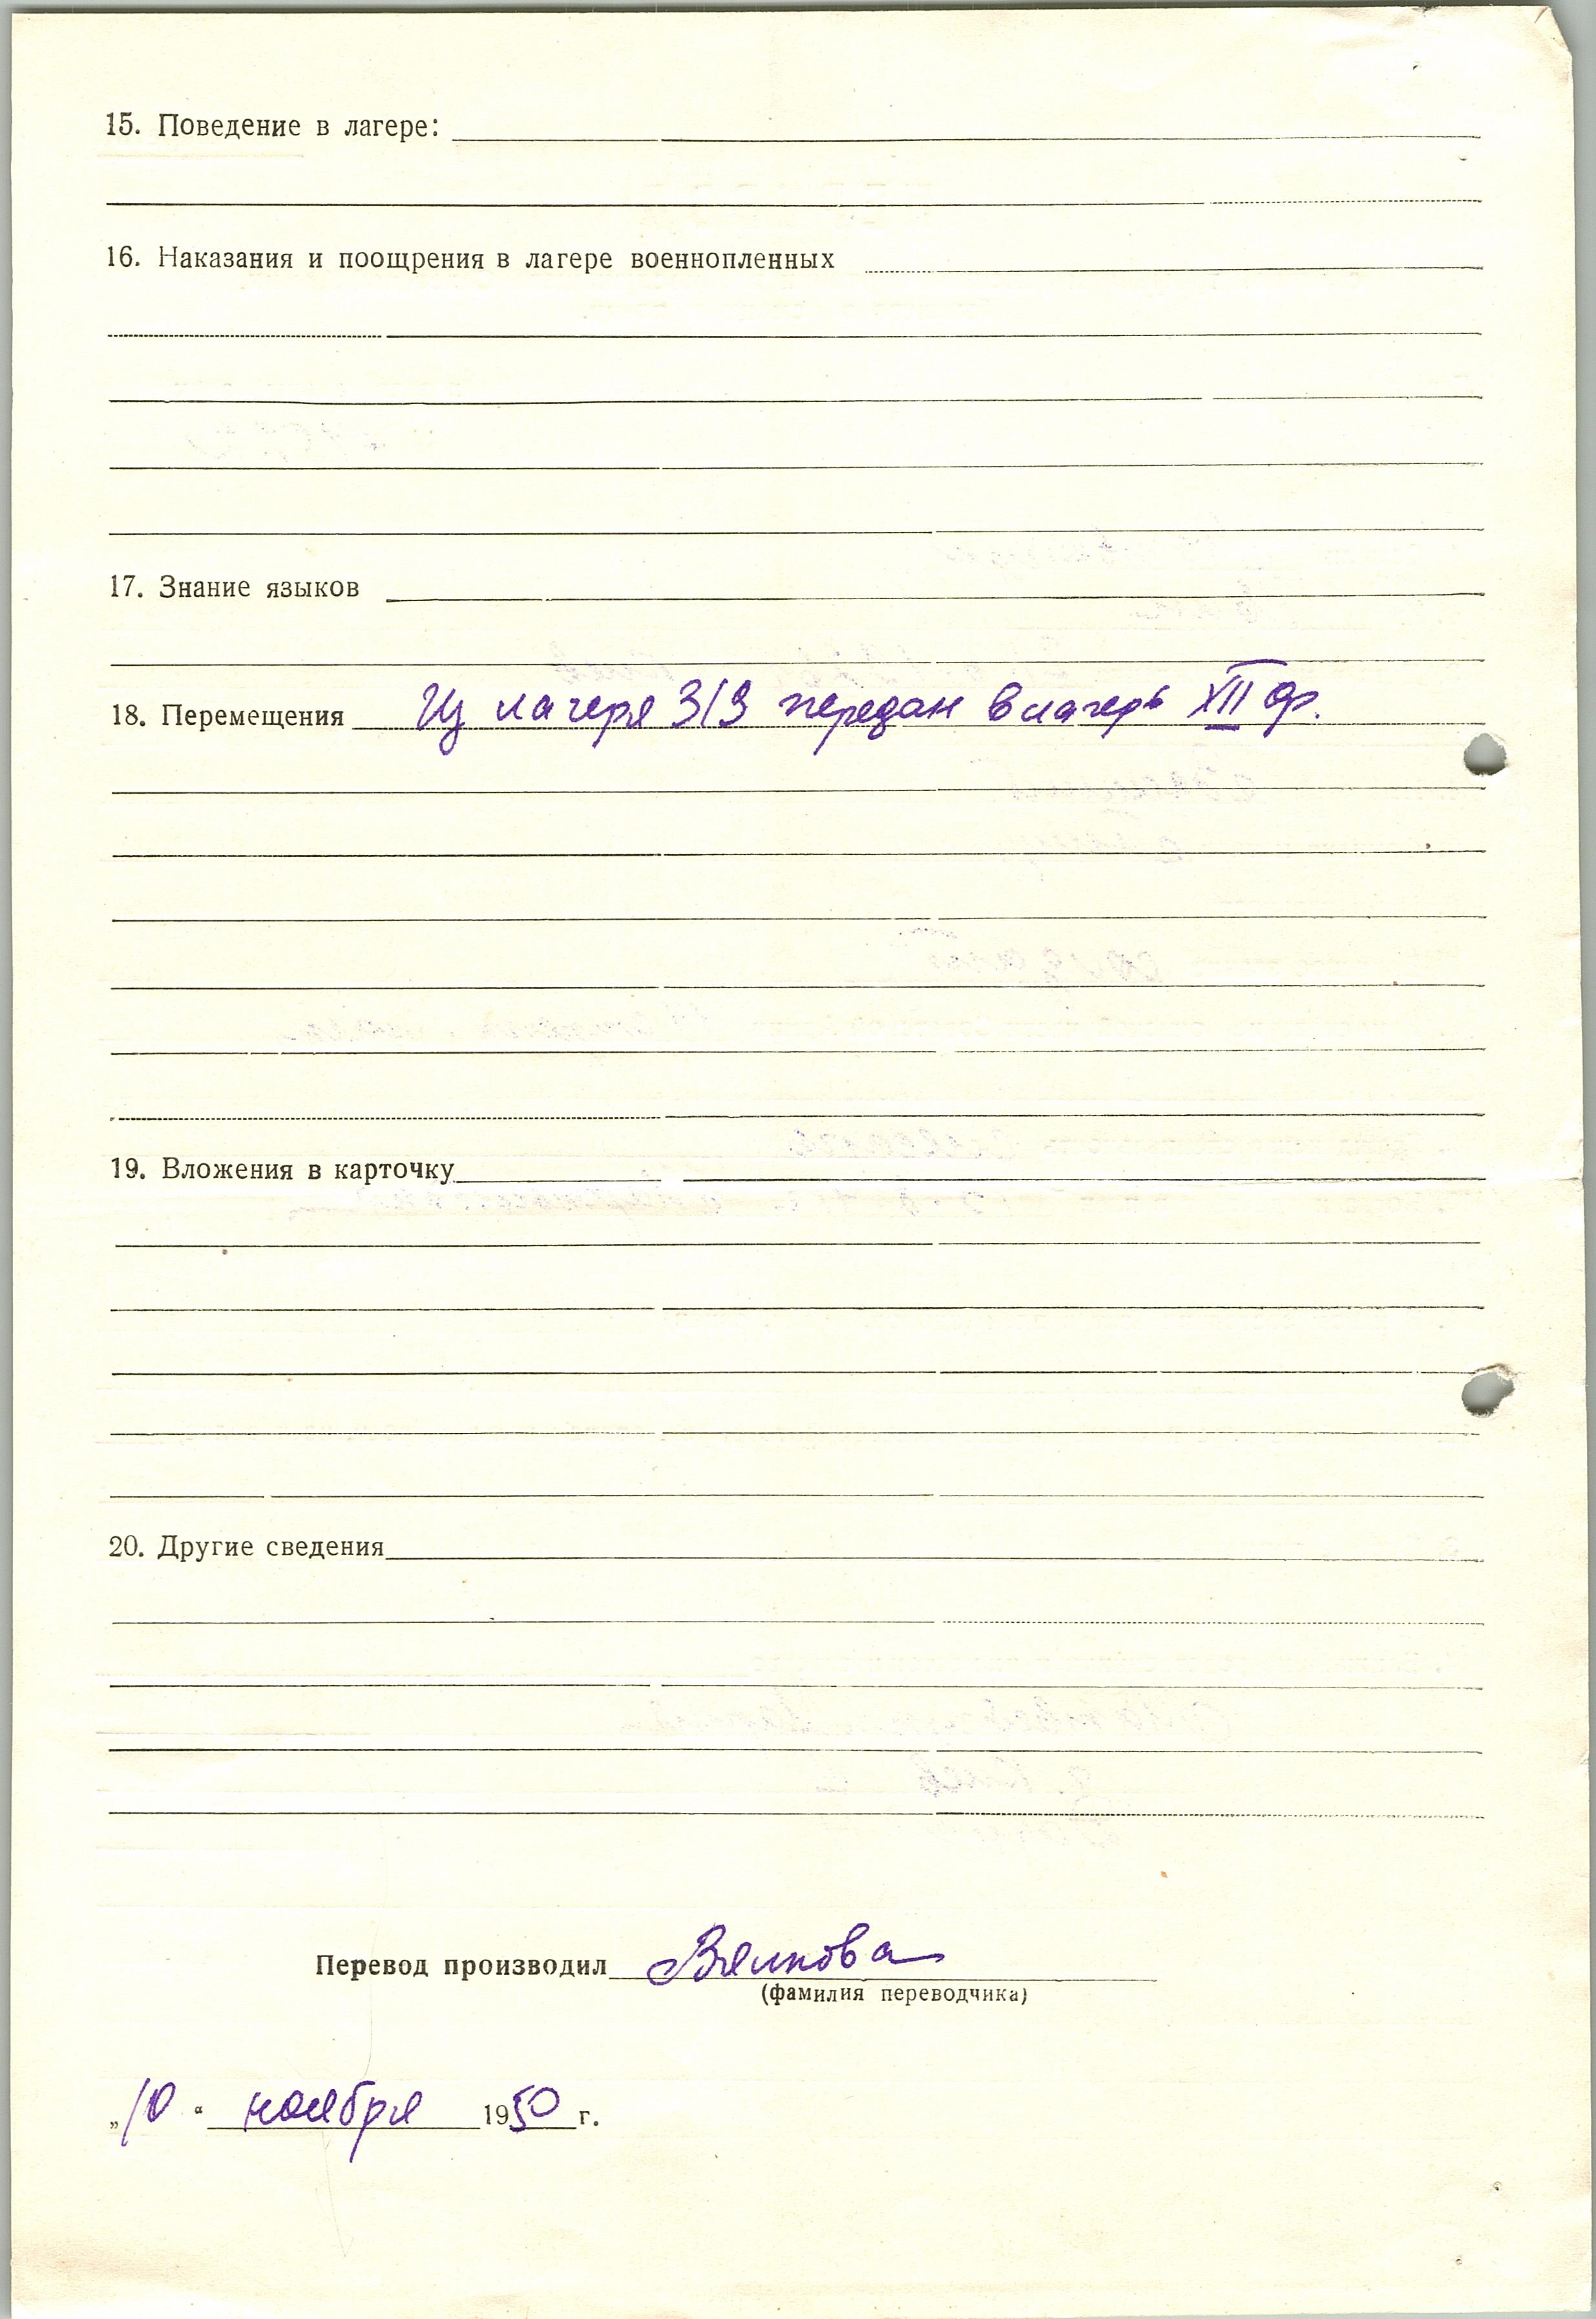 15. Поведение в лагере:
16. Наказания и поощрения в лагере военнопленных
17. Знание языков
18. Перемещения Из лагеря 319 передан в лагерь XIII ф.
19. Вложения в карточку
20. Другие сведения
Перевод производил
(фамилия переводчика)
„10“ ноября 1950 г.